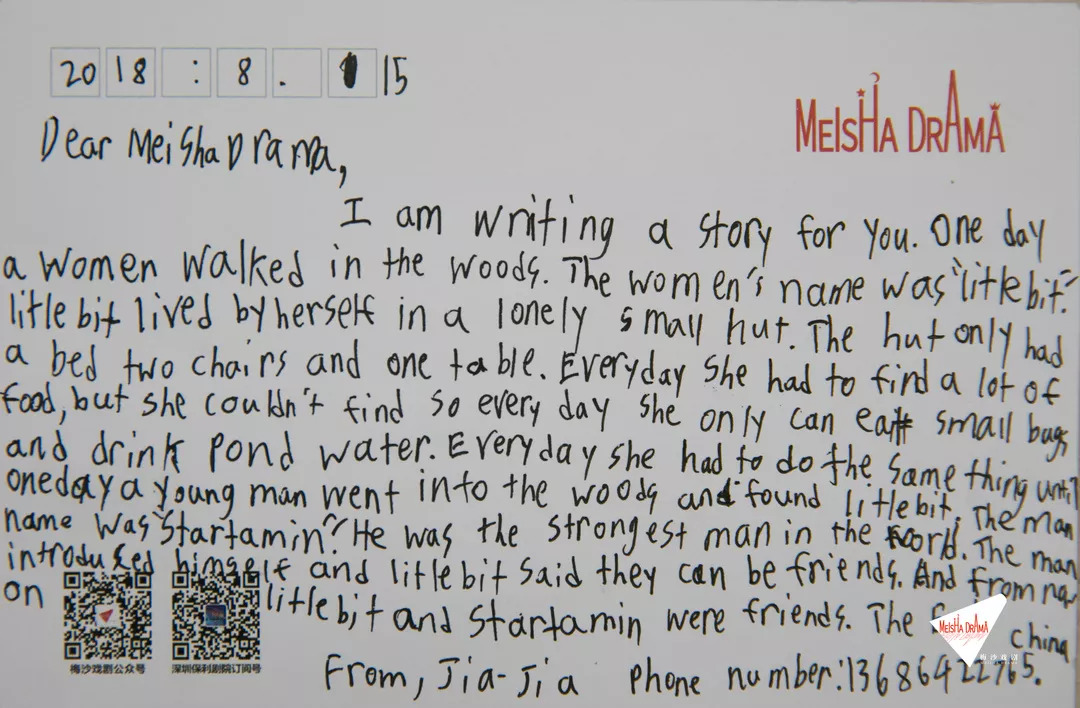 2018 : 8. 15
MEISHA DRAMA
Dear MeiSha Drama,
I am writing a story for you. One day
a women walked in the woods. The women's name was "litle bit".
litle bit lived by herself in a lonely small hut. The hut only had
a bed two chairs and one table. Everyday She had to find a lot of
food, but she couldn't find so every day she only can eat small bugs
and drink pond water. Everyday she had to do the same thing until
oneday a young man went into the woods and found litle bit. The man
name was "Startamin". He was the strongest man in the world. The man
introdused himself and litle bit said they can be friends. And from now
on litle bit and Startamin were friends. The
MEISHA DRAMA
梅沙戏剧
china
梅沙戏剧公众号 深圳保利剧院订阅号
From, Jia-Jia phone number: 13686422765.